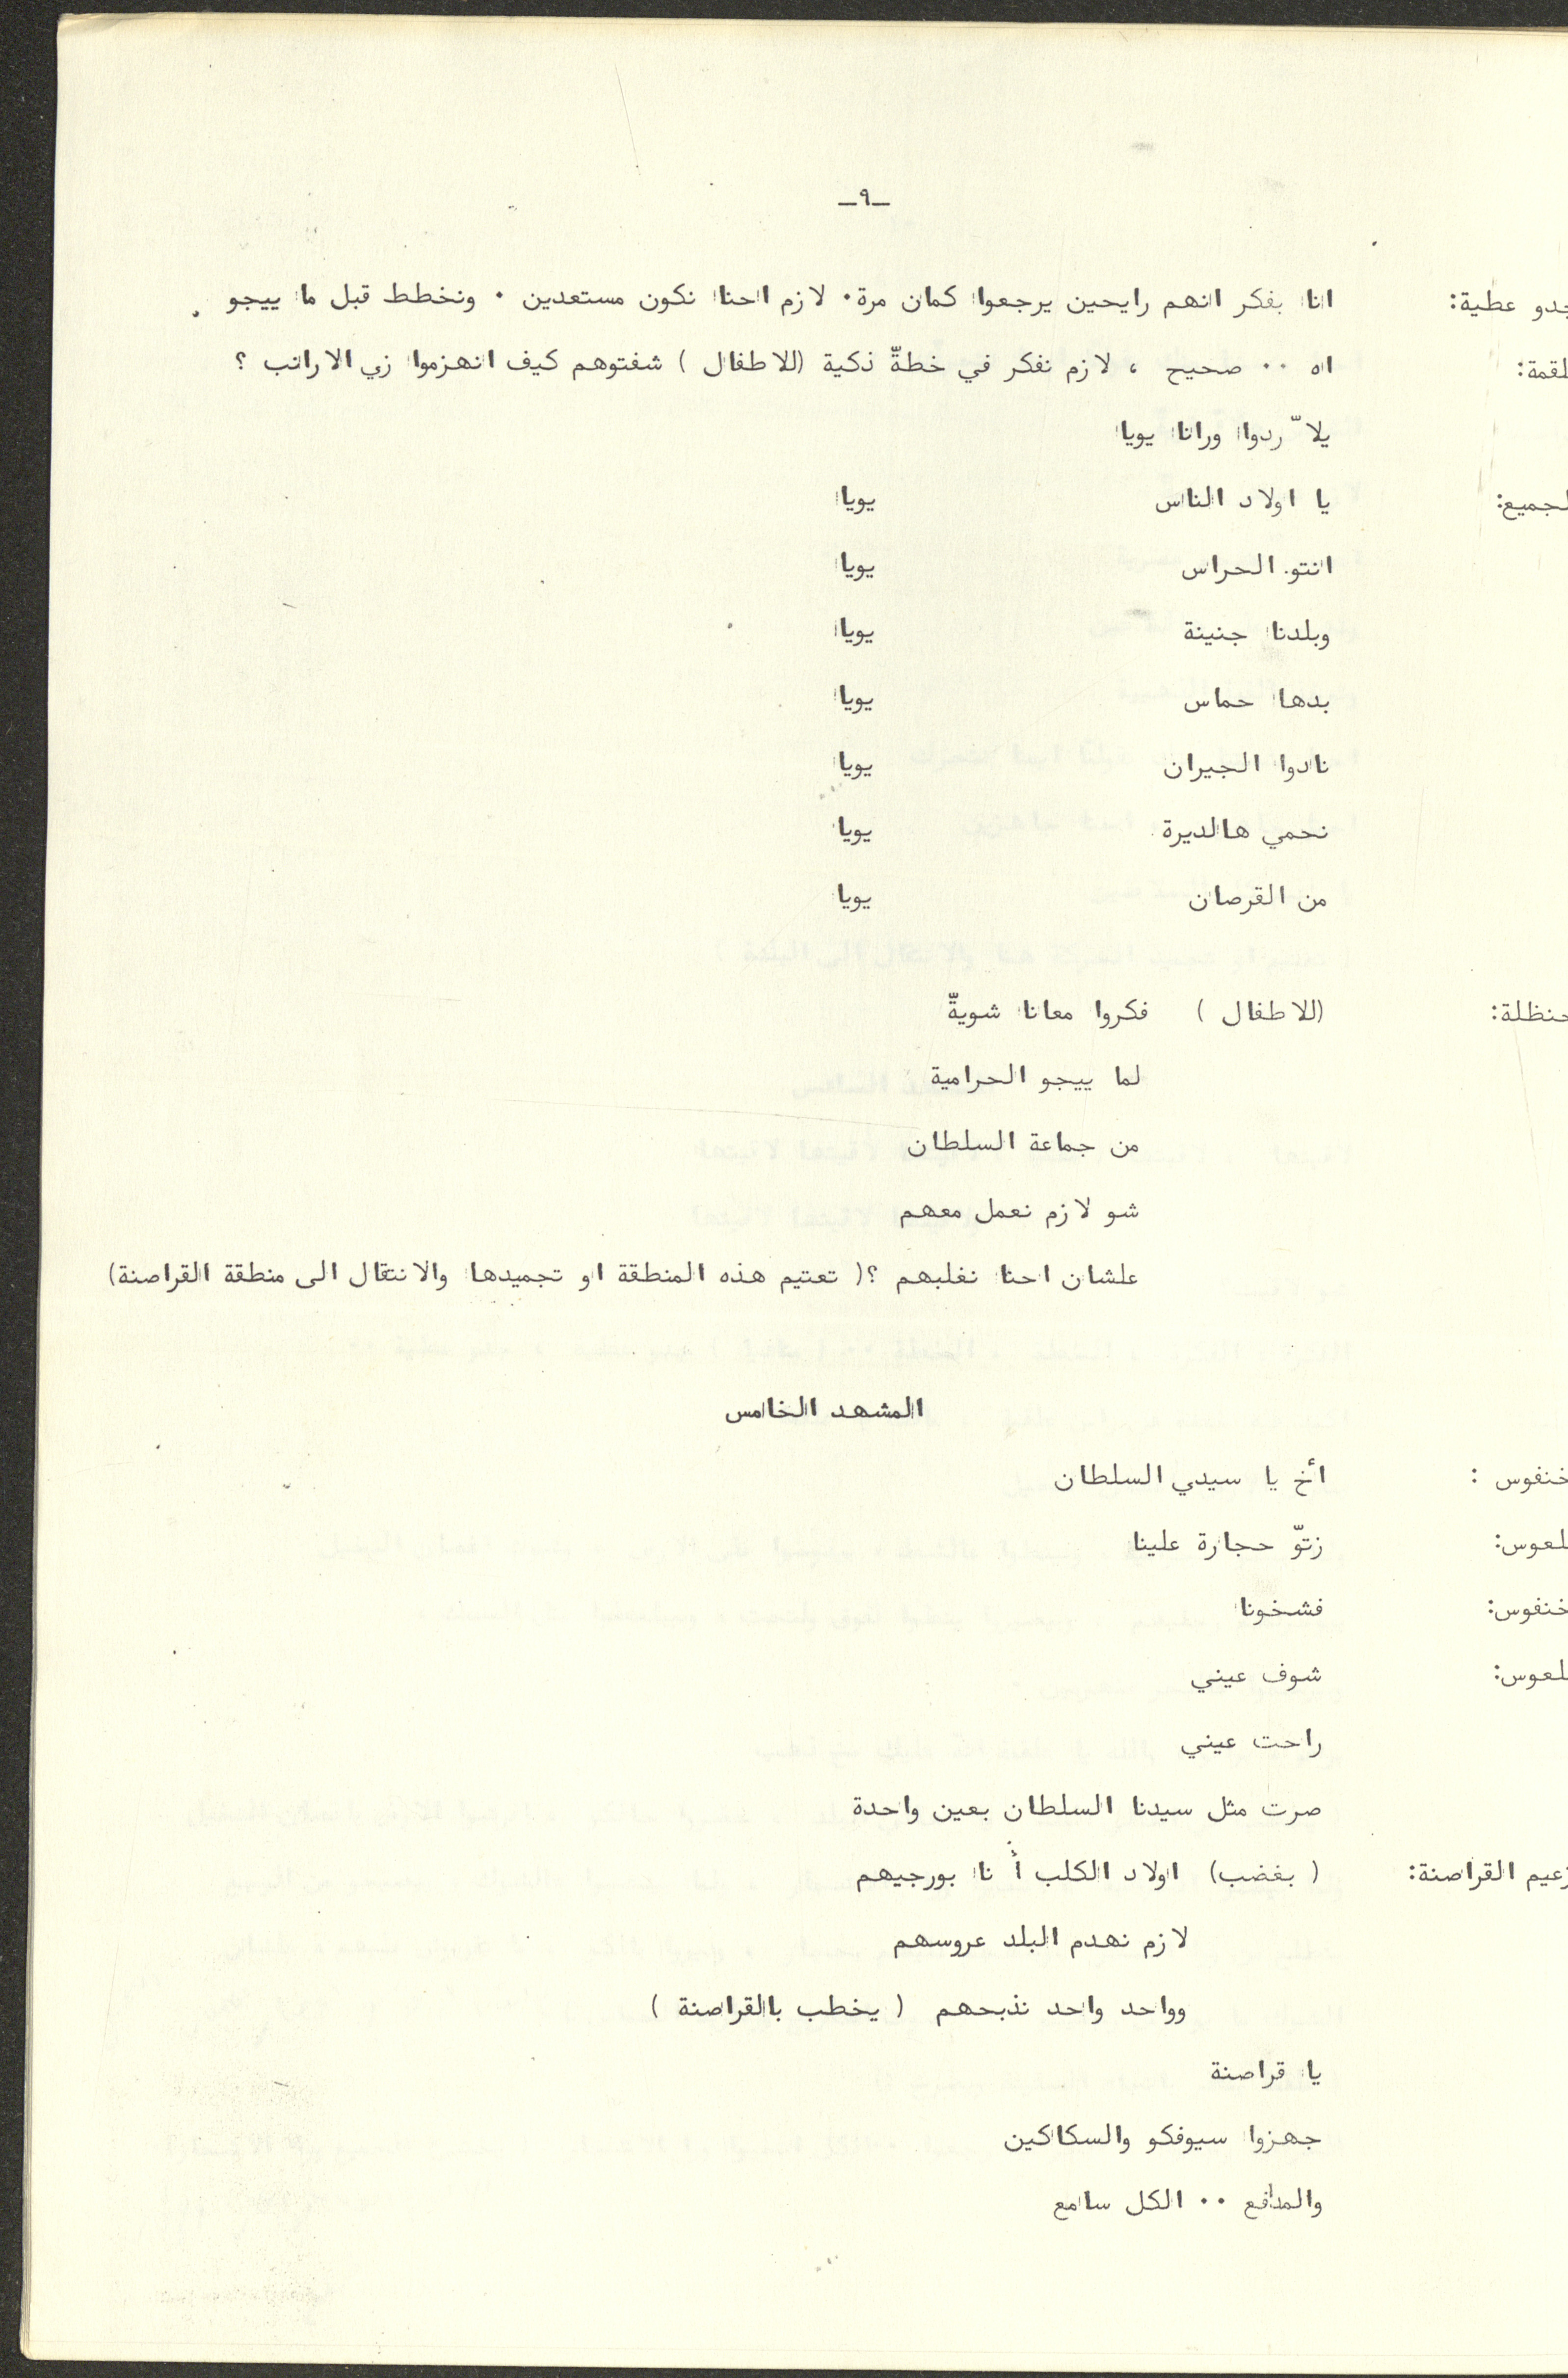 ـ٩ـ
جدو عطية: انا بفكر انهم رايحين يرجعوا كمان مرة٠ لازم احنا نكون مستعدين ٠ ونخطط قبل ما ييجو ٠
لقمة: اه ٠٠ صحيح ، لازم نفكر في خطةّ ذكية (للاطفال ) شفتوهم كيف انهزموا زي الارانب ؟
يلاّ ردوا ورانا يويا
لجميع: يا اولاد الناس يويا
انتو الحراس يويا
وبلدنا جنينة يويا
بدها حماس يويا
نادوا الجيران يويا
نحمي هالديرة يويا
من القرصان يويا
حنظلة: (للاطفال ) فكروا معانا شويةّ
لما ييجو الحرامية
من جماعة السلطان
شو لازم نعمل معهم
علشان احنا نغلبهم ؟( تعتيم هذه المنطقة او تجميدها والانتقال الى منطقة القراصنة)
المشهد الخامس
خنفوس : أخ يا سيدي السلطان
لعوس: زتوّ حجارة علينا
خنفوس: فشخونا
لعوس: شوف عيني
راحت عيني
صرت مثل سيدنا السلطان بعين واحدة
زعيم القراصنة: ( بغضب) اولاد الكلب أنا بورجيهم
لازم نهدم البلد عروسهم
وواحد واحد نذبحهم ( يخطب بالقراصنة )
يا قراصنة
جهزوا سيوفكو والسكاكين
والمدافع ٠٠ الكل سامع